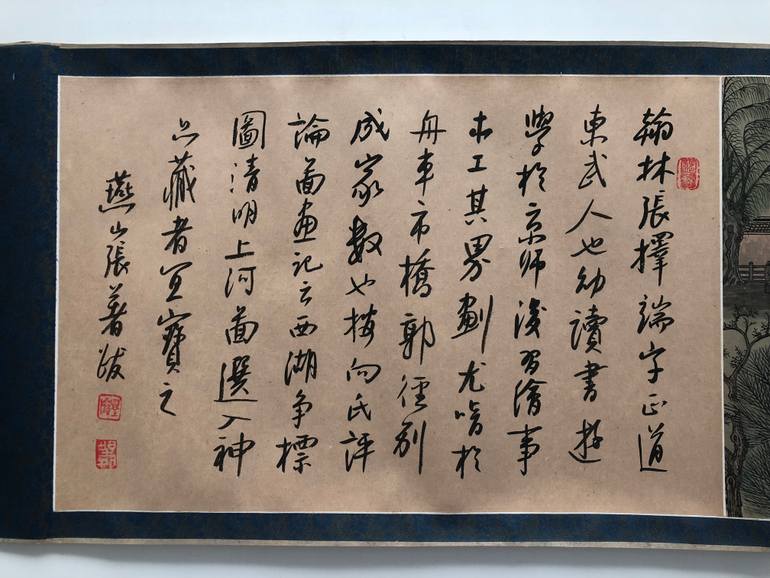 翰林張擇端字正道
東武人也幼讀書遊
學於京師後習繪事
本工其界劃尤嗜於
舟車市橋郭徑別
成家數也按向氏評
論圖畫記云西湖争標
圖清明上河圖選入神
品藏者宜寶之
燕山張著跋